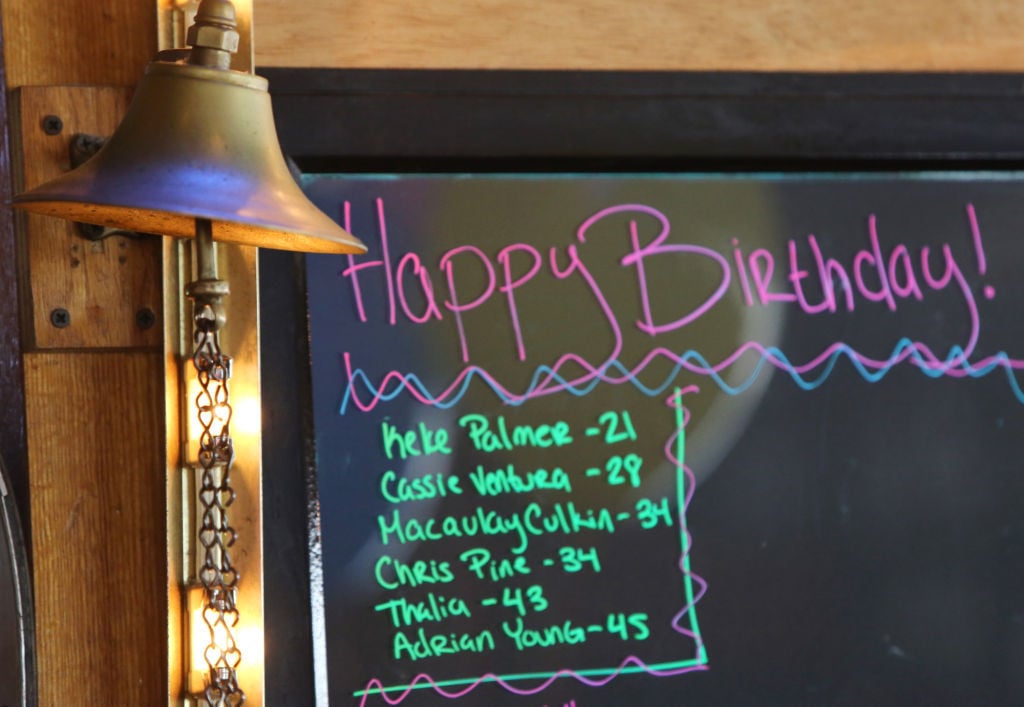 Happy Birthday!
Keke Palmer - 21
Cassie Ventura - 28
Macaulay Culkin - 34
Chris Pine - 34
Thalia - 43
Adrian Young - 45